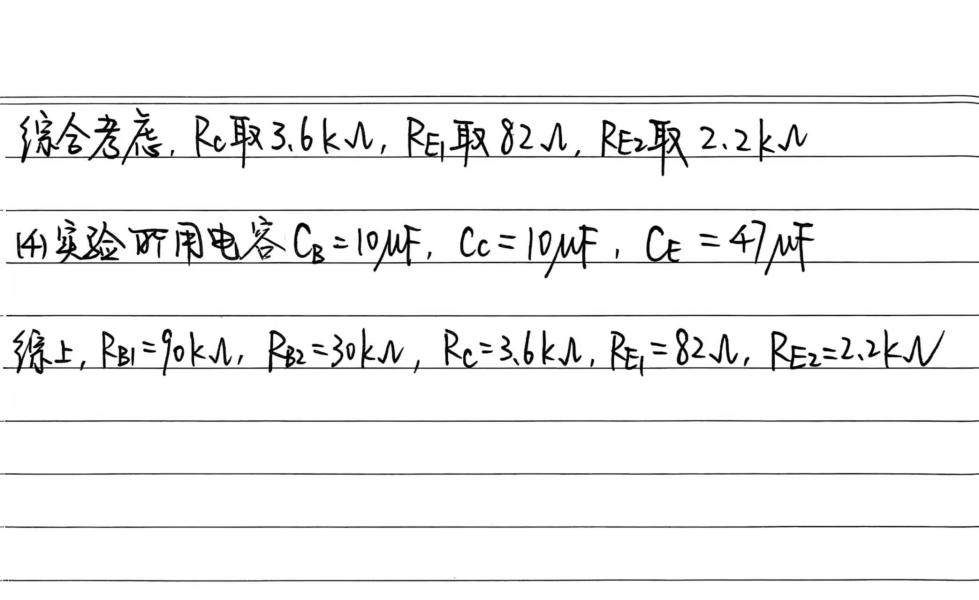 综合考虑, Rc取3.6kΩ, RE1取82Ω, RE2取2.2kΩ
(4)实验所用电容CB=10μF, Cc=10μF, CE=47μF
综上, RB1=90kΩ, RB2=30kΩ, Rc=3.6kΩ, RE1=82Ω, RE2=2.2kΩ